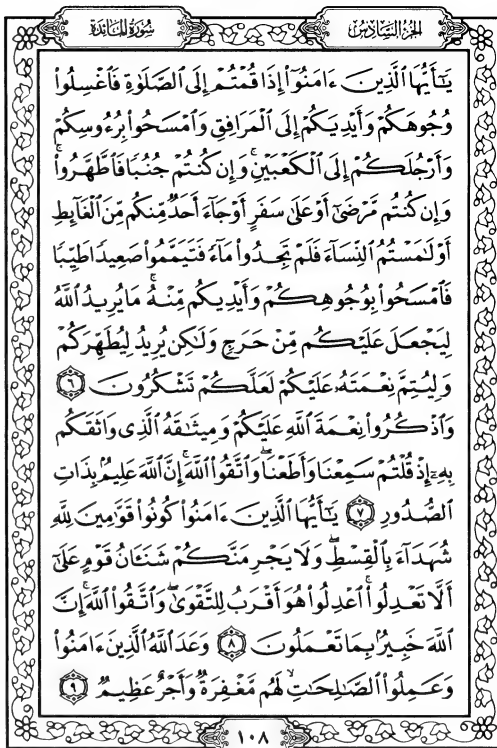 سُورَةُ المَائدَة
الجُزءُ السَّادِسُ
يَٰٓأَيُّهَا ٱلَّذِينَ ءَامَنُوٓا۟ إِذَا قُمْتُمْ إِلَى ٱلصَّلَوٰةِ فَٱغْسِلُوا۟
وُجُوهَكُمْ وَأَيْدِيَكُمْ إِلَى ٱلْمَرَافِقِ وَٱمْسَحُوا۟ بِرُءُوسِكُمْ
وَأَرْجُلَكُمْ إِلَى ٱلْكَعْبَيْنِ ۚ وَإِن كُنتُمْ جُنُبًا فَٱطَّهَّرُوا۟ ۚ
وَإِن كُنتُم مَّرْضَىٰٓ أَوْ عَلَىٰ سَفَرٍ أَوْ جَآءَ أَحَدٌ مِّنكُم مِّنَ ٱلْغَآئِطِ
أَوْ لَٰمَسْتُمُ ٱلنِّسَآءَ فَلَمْ تَجِدُوا۟ مَآءً فَتَيَمَّمُوا۟ صَعِيدًا طَيِّبًا
فَٱمْسَحُوا۟ بِوُجُوهِكُمْ وَأَيْدِيكُم مِّنْهُ ۚ مَا يُرِيدُ ٱللَّهُ
لِيَجْعَلَ عَلَيْكُم مِّنْ حَرَجٍ وَلَٰكِن يُرِيدُ لِيُطَهِّرَكُمْ
وَلِيُتِمَّ نِعْمَتَهُۥ عَلَيْكُمْ لَعَلَّكُمْ تَشْكُرُونَ ٦
وَٱذْكُرُوا۟ نِعْمَةَ ٱللَّهِ عَلَيْكُمْ وَمِيثَٰقَهُ ٱلَّذِى وَاثَقَكُم
بِهِۦٓ إِذْ قُلْتُمْ سَمِعْنَا وَأَطَعْنَا ۖ وَٱتَّقُوا۟ ٱللَّهَ ۚ إِنَّ ٱللَّهَ عَلِيمٌۢ بِذَاتِ
ٱلصُّدُورِ ٧ يَٰٓأَيُّهَا ٱلَّذِينَ ءَامَنُوا۟ كُونُوا۟ قَوَّٰمِينَ لِلَّهِ
شُهَدَآءَ بِٱلْقِسْطِ ۖ وَلَا يَجْرِمَنَّكُمْ شَنَـَٔانُ قَوْمٍ عَلَىٰٓ
أَلَّا تَعْدِلُوا۟ ۚ ٱعْدِلُوا۟ هُوَ أَقْرَبُ لِلتَّقْوَىٰ ۖ وَٱتَّقُوا۟ ٱللَّهَ ۚ إِنَّ
ٱللَّهَ خَبِيرٌۢ بِمَا تَعْمَلُونَ ٨ وَعَدَ ٱللَّهُ ٱلَّذِينَ ءَامَنُوا۟
وَعَمِلُوا۟ ٱلصَّٰلِحَٰتِ ۙ لَهُم مَّغْفِرَةٌ وَأَجْرٌ عَظِيمٌ ٩
١٠٨